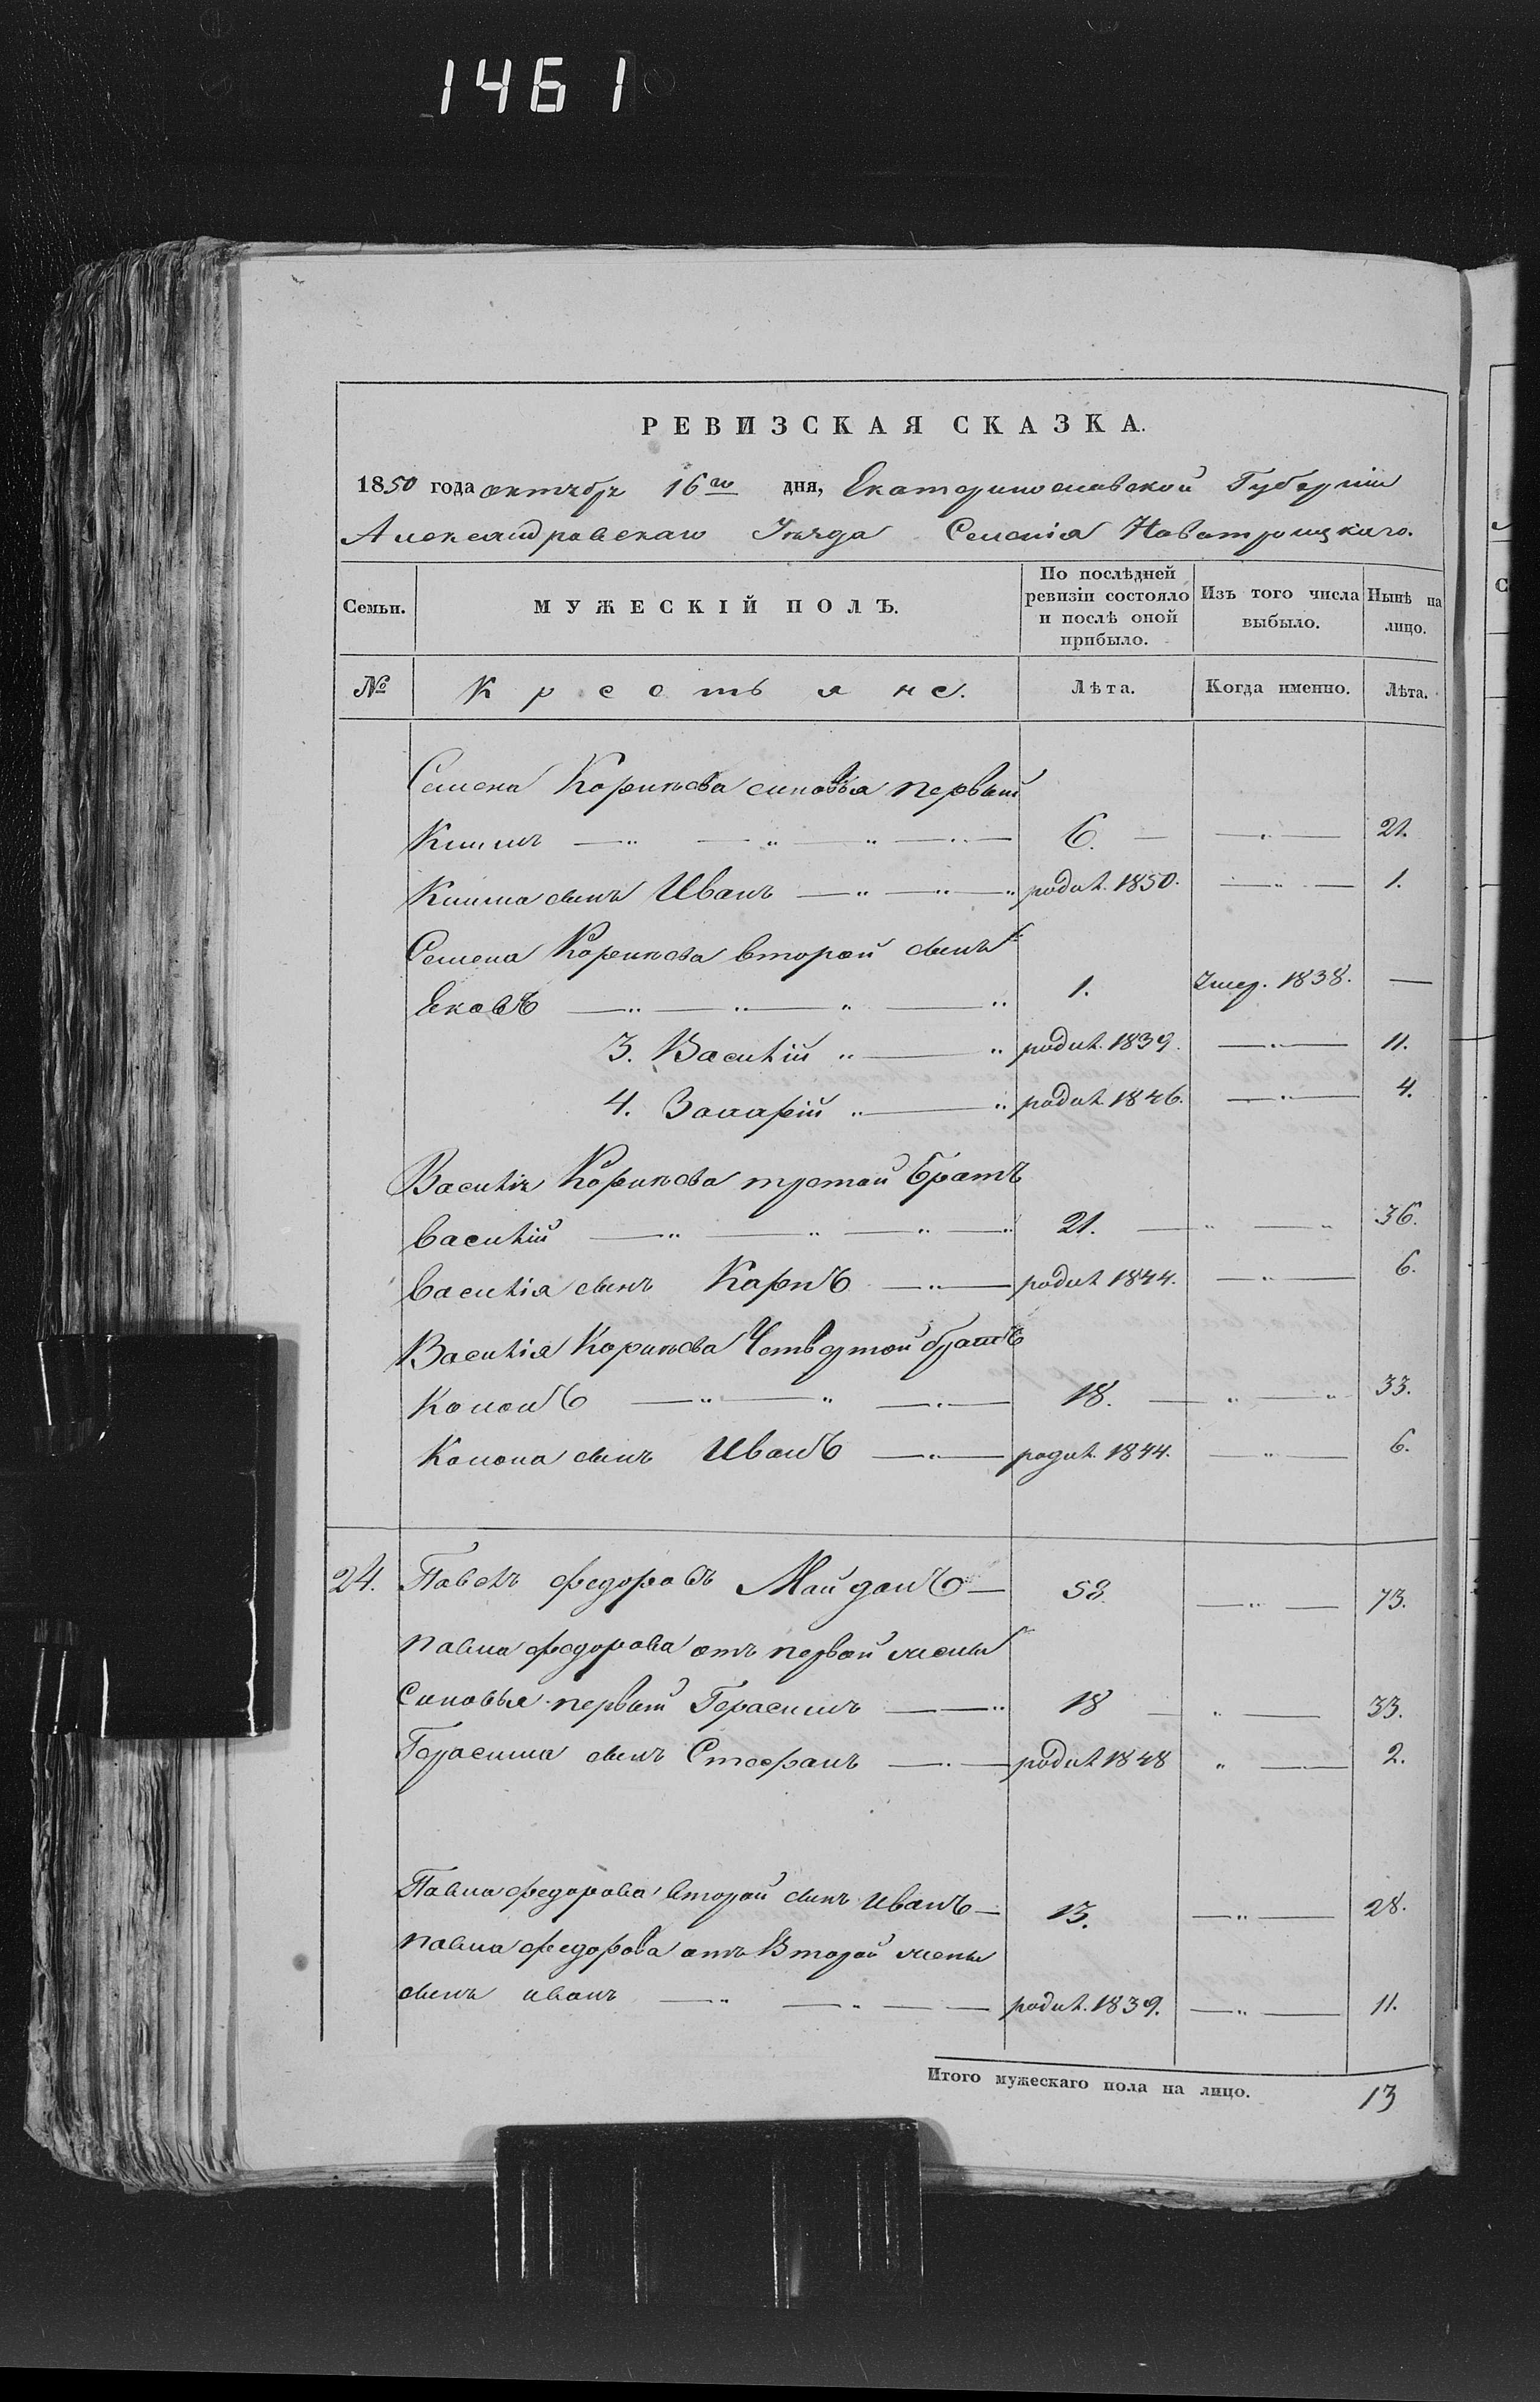 1461
РЕВИЗСКАЯ СКАЗКА.
1850 года октября 16го дня, Екатеринославской Губерніи
Александровскаго Уѣзда Селенія Новотроицкаго.
Семьи. МУЖЕСКІЙ ПОЛЪ. По послѣдней ревизіи состояло и послѣ оной прибыло. Изъ того числа выбыло. Нынѣ на лицо.
№ Крестьяне. Лѣта. Когда именно. Лѣта.
Семена синовья первый
Климъ 6. 21.
Клима сынъ Иванъ родил. 1850. 1.
Семена второй сынъ
Яковъ 1. Умер. 1838. —
3. Василій родил. 1839. 11.
4. родил. 1846. 4.
Василія третой братъ
Василій 21. 36.
Василія сынъ Карпъ родил. 1844. 6.
Василія Четвертой братъ
Кононъ 18. 33.
Конона сынъ Иванъ родил. 1844. 6.
24. Павелъ Федоровъ Майданъ 58. 73.
Павла Федорова отъ первой жены
Синовья первый Герасимъ 18 33.
Герасима сынъ Стефанъ родил. 1848 2.
Павла Федорова второй сынъ Иванъ 13. 28.
Павла Федорова отъ Второй жены
сынъ иванъ родил. 1839. 11.
Итого мужескаго пола на лицо. 13